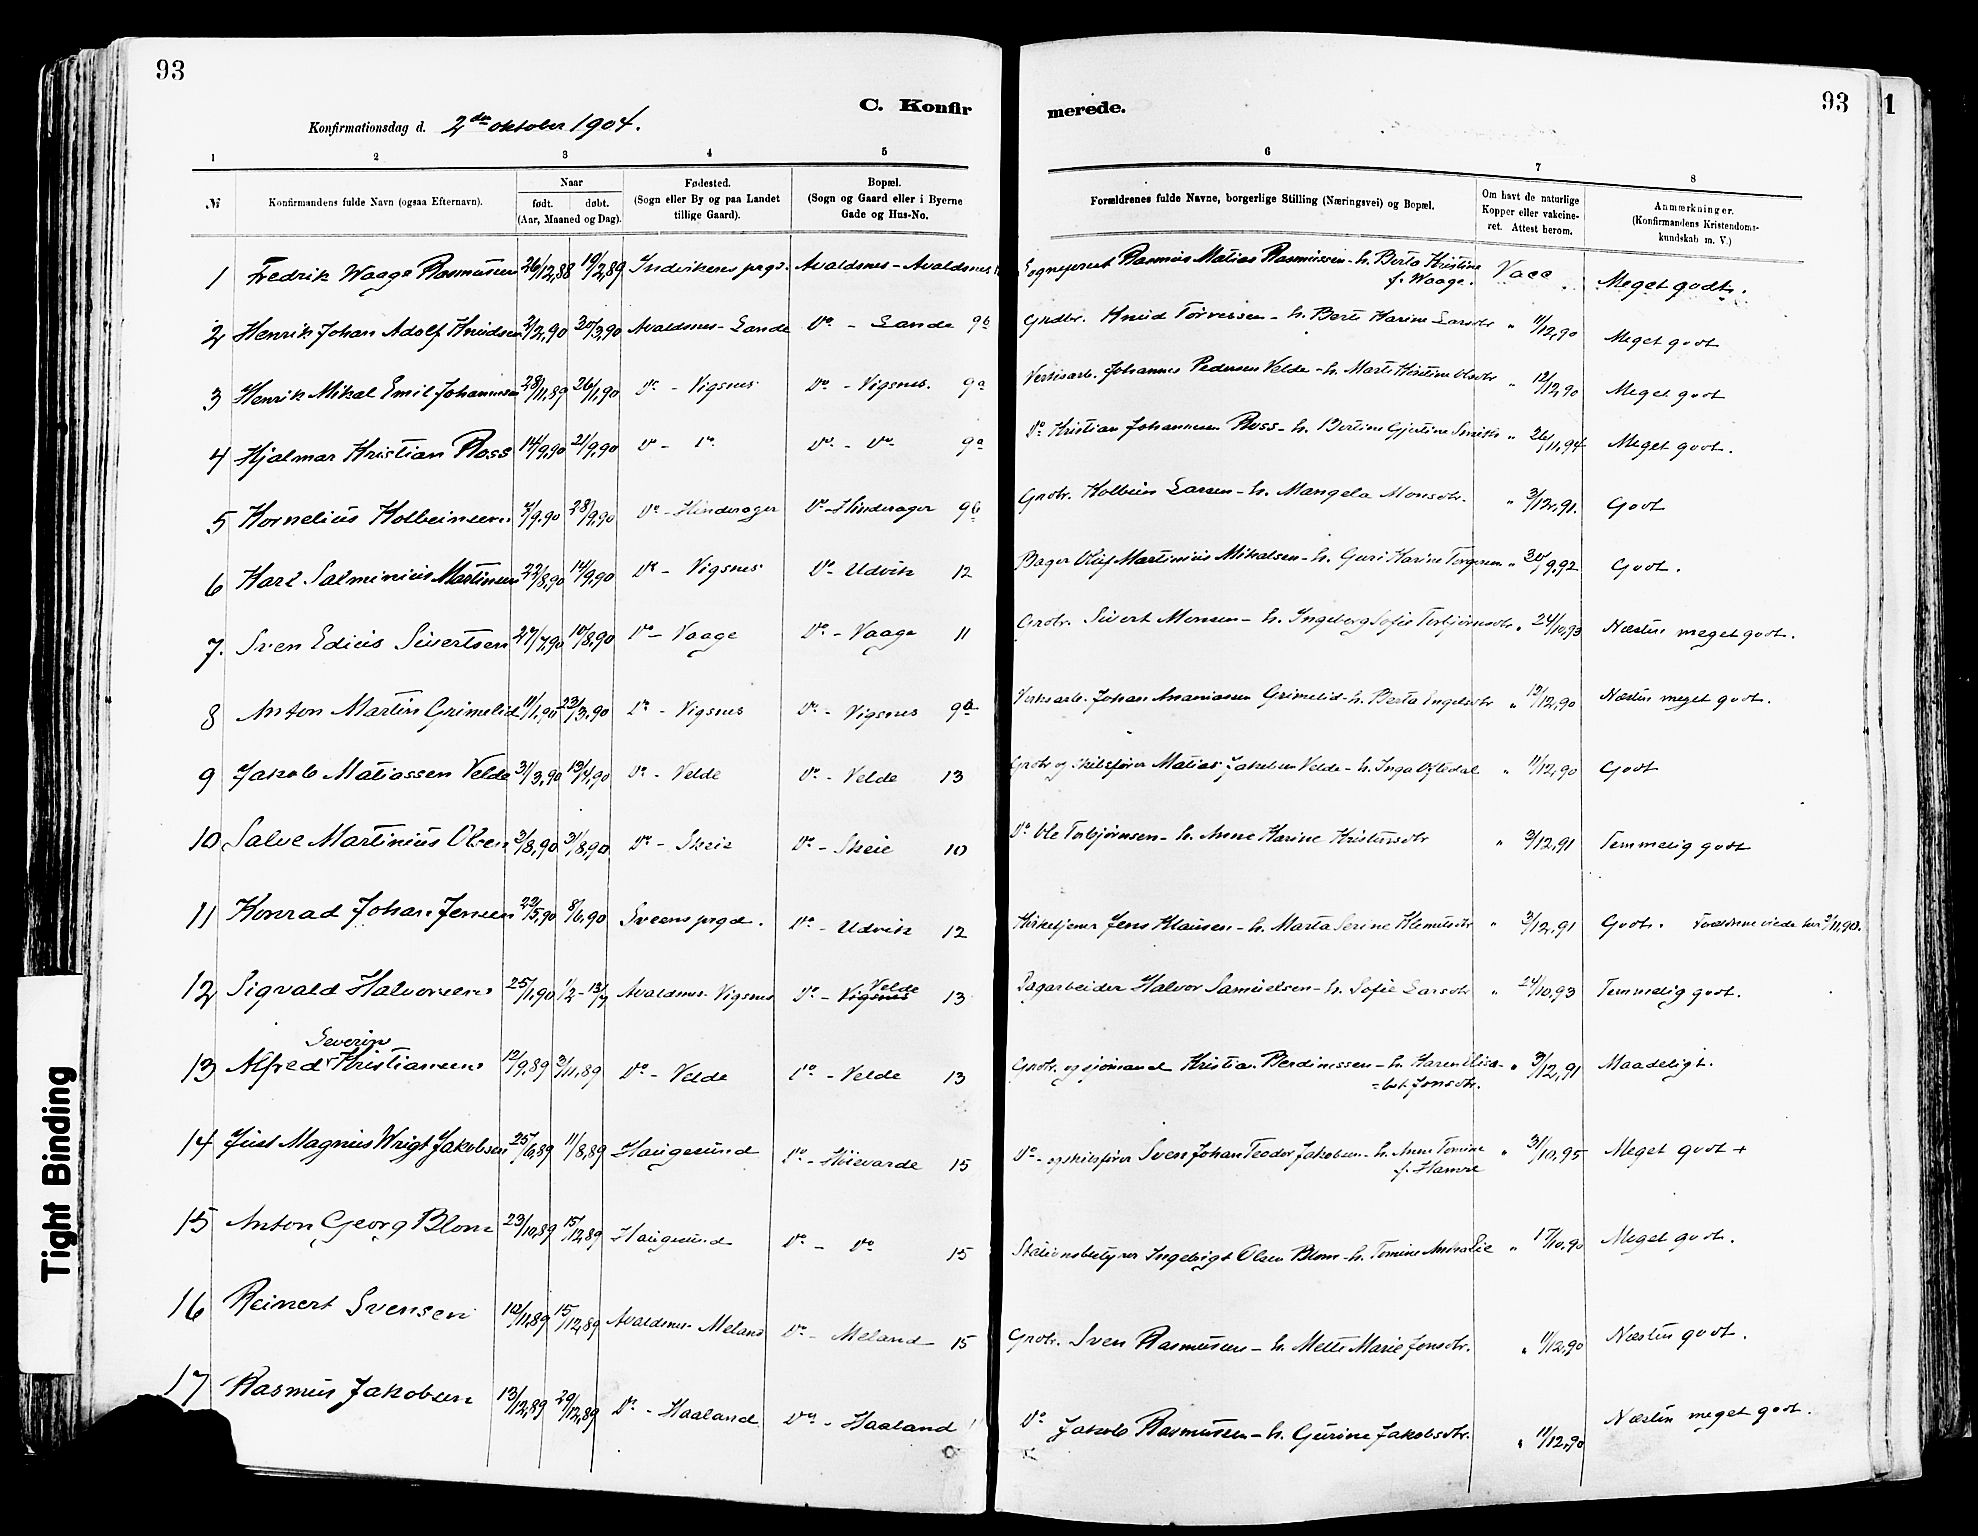 93
C. Konfir
merede.
93
1
Konfirmationsdag d. 2den oktober 1904.
1 2 3 4 5 6 7 8
№
Konfirmandens fulde Navn (ogsaa Efternavn).
Naar
født. døbt.
(Aar, Maaned og Dag).
Fødested.
(Sogn eller By og paa Landet
tillige Gaard).
Bopæl.
(Sogn og Gaard eller i Byerne
Gade og Hus-No.
Forældrenes fulde Navne, borgerlige Stilling (Næringsvei) og Bopæl.
Om havt de naturlige
Kopper eller vakcine-
ret. Attest herom.
Anmærkninger.
(Konfirmandens Kristendoms-
kundskab m. V.)
1 Fredrik Waage Rasmussen 26/12,88 19/2,89 Indvikens prgd. Avaldsnes - Avaldsnes Sogneprest Rasmus Matias Rasmussen - h. Berta Kristine f. Waage. Vacc Meget godt.
2 Henrik Johan Adolf Knudsen 2/2,90 30/3,90 Avaldsnes - Sande Do - Sande 9b Grdbr. Knud Torressen - h. Berte Karine Larsdtr " 11/12,90 Meget godt
3 Henrik Mikal Emil Johannesen 28/11,89 26/1,90 Do - Vigsnes Do - Vigsnes. 9a Verksarb. Johannes Pedersen Velde - h. Marte Kristine Olsdtr " 12/12,90 Meget godt
4 Hjalmar Kristian Ross 14/9,90 21/9,90 Do - Do Do - Do 9a Do Kristian Johannesen Ross - h. Bertine Gjertine " 26/11,94 Meget godt.
5 Kornelius Kolbeinsen 2/9,90 28/9,90 Do - Hinderager Do - Hinderager 9b Grdbr. Kolbein Larsen - h. Mangela Monsdtr. " 3/12,91. Godt
6 Karl Salminius Martinsen 22/8,90 14/9,90 Do - Vigsnes Do Udvik 12 Bager Oluf Martinius Mikalsen - h. Guri Karine Torgersen " 30/9,92 Godt.
7. Sven Edius Sivertsen 27/7,90 10/8,90 Do - Vaage Do - Vaage 11 Grdbr. Sivert Monsen - h. Ingeborg Sofie Torbjørnsdtr " 24/10,93 Næsten meget godt.
8 Anton Martin Grimelid 11/1,90 23/3,90 Do - Vigsnes Do - Vigsnes 9a Verksarb. Johan Ananiassen Grimelid - h. Berta Engelsdtr " 12/12,90 Næsten meget godt.
9 Jakob Matiassen Velde 31/3,90 13/4,90 Do - Velde Do - Velde 13 Grdbr og skibsfører Matias Jakobsen Velde - h. Inga Oftedal " 11/12,90 Godt
10 Salve Martinius Olsen 3/8,90 31/8,90 Do - Skeie Do - Skeie 10 Do Ole Torbjørnsen - h. Anne Karine Kristensdtr " 3/12,91 Temmelig godt
11 Konrad Johan Jensen 22/5,90 8/6,90 Sveens prgd. Do - Udvik 12 Kirketjener Jens Klausen - h. Marta Serine Klemetsdtr " 3/12,91 Godt. Forældrene viede her 2/11,90.
12 Sigvald Halvorsen 25/1,90 1/2 - 13/4 Avaldsnes - Vigsnes Do - Vigsnes Velde 13 Dagarbeider Halvor Samuelsen - h. Sofie Larsdtr " 24/10,93 Temmelig godt.
13 Alfred Severin Kristiansen 12/9,89 3/11,89 Do - Velde Do - Velde 13 Grdbr. og sjømand Kristian Berdinessen - h. Karen Elisa-
=bet Jonsdtr. " 3/12,91 Maadeligt.
14 Just Magnus Wrigt Jakobsen 25/6,89 11/8,89 Haugesund Do - Høievarde 15 Do - og skibsfører Sven Johan Teodor Jakobsen - h. Anne Tomine f. Hamre " 31/10,95 Meget godt +
15 Anton Georg Blom 23/10,89 15/12,89 Haugesund Do - Do 15 Stationsbestyrer Ingebrigt Olsen Blom - h. Tomine Amalie " 17/10,90 Meget godt.
16 Reinert Svensen 10/11,89 15/12,89 Avaldsnes - Meland Do - Meland 15 Grdbr. Sven Rasmussen - h. Mette Marie Jonsdtr. " 11/12,90 Næsten godt.
17 Rasmus Jakobsen 13/12,89 29/12,89 Do - Haaland Do - Haaland Do Jakob Rasmussen - h. Gurine Jakobsdtr. " 11/12,90 Næsten meget godt.
Tight Binding